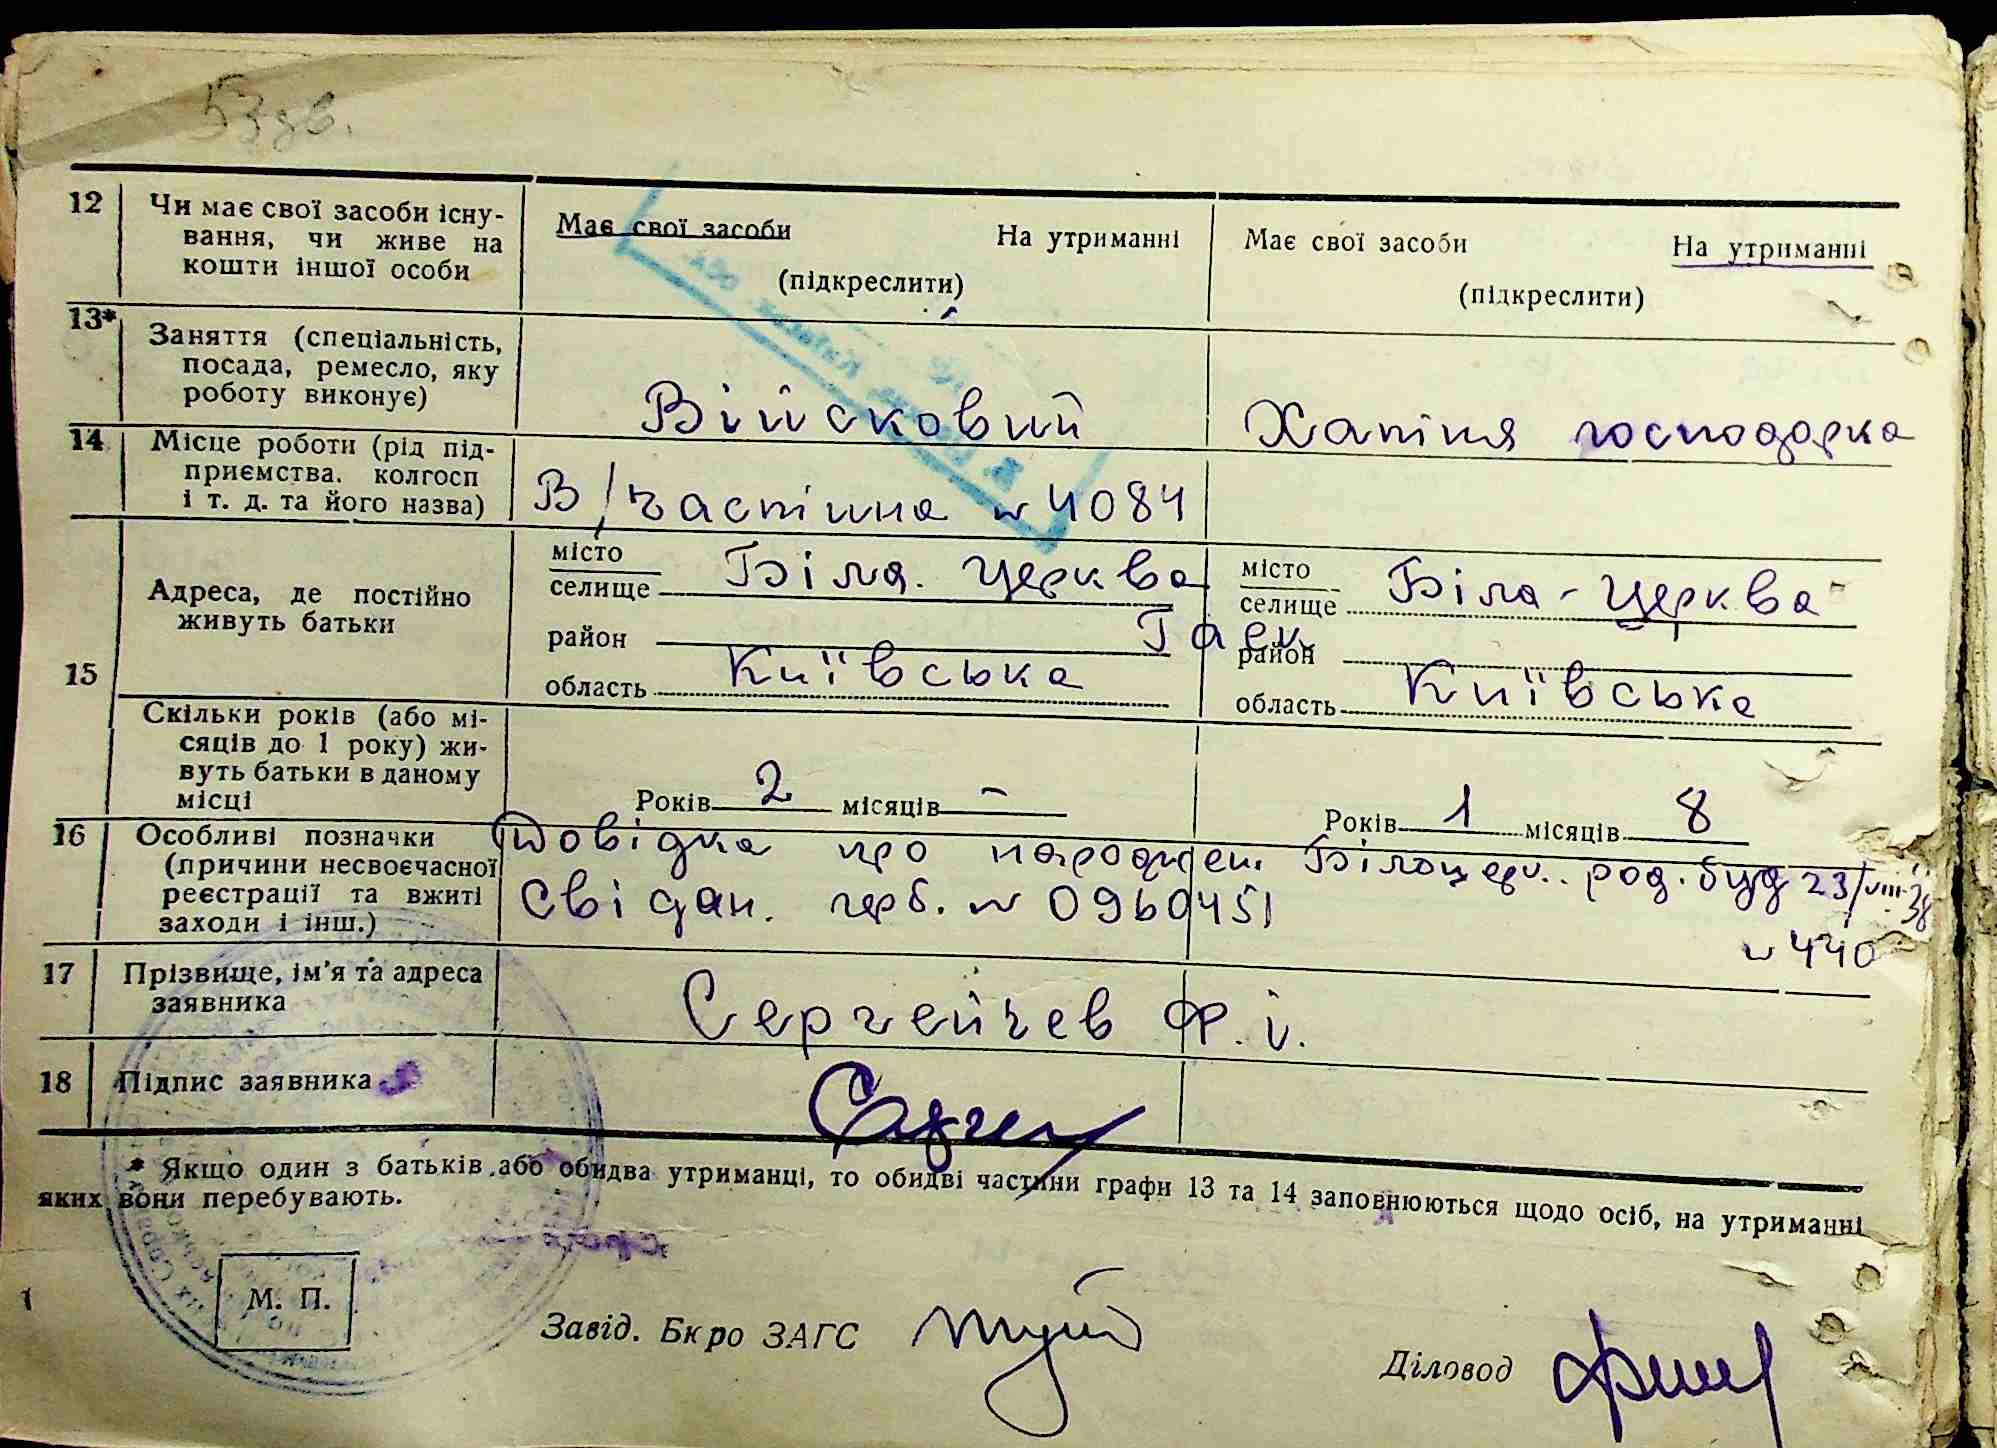 53 зв.
12 Чи має свої засоби існу-
вання, чи живе на
кошти іншої особи
Має свої засоби На утриманні
(підкреслити)
Має свої засоби На утриманні
(підкреслити)
13* Заняття (спеціальність,
посада, ремесло, яку
роботу виконує)
Війсковий
Хатня господарка
14 Місце роботи (рід під-
приємства. колгосп
і т. д. та його назва)
В/частина № 4084
15 Адреса, де постійно
живуть батьки
місто
селище Біла. Церква
район Гаєк
область Київська
місто
селище Біла-Церква
район
область Київська
Скільки років (або мі-
сяців до 1 року) жи-
вуть батьки в даному
місці
Років 2 місяців -
Років 1 місяців 8
16 Особливі позначки
(причини несвоєчасної
реєстрації та вжиті
заходи і інш.)
Довідка про народжен. Білоцерк. род. буд 23/VIII-38
№ 440
Свідан. герб. № 0960451
17 Прізвище, ім'я та адреса
заявника
Сергейчев Ф. І.
18 Підпис заявника
* Якщо один з батьків або обидва утриманці, то обидві частини графи 13 та 14 заповнюються щодо осіб, на утриманні
яких вони перебувають.
М. П.
Завід. Бкро ЗАГС
Діловод